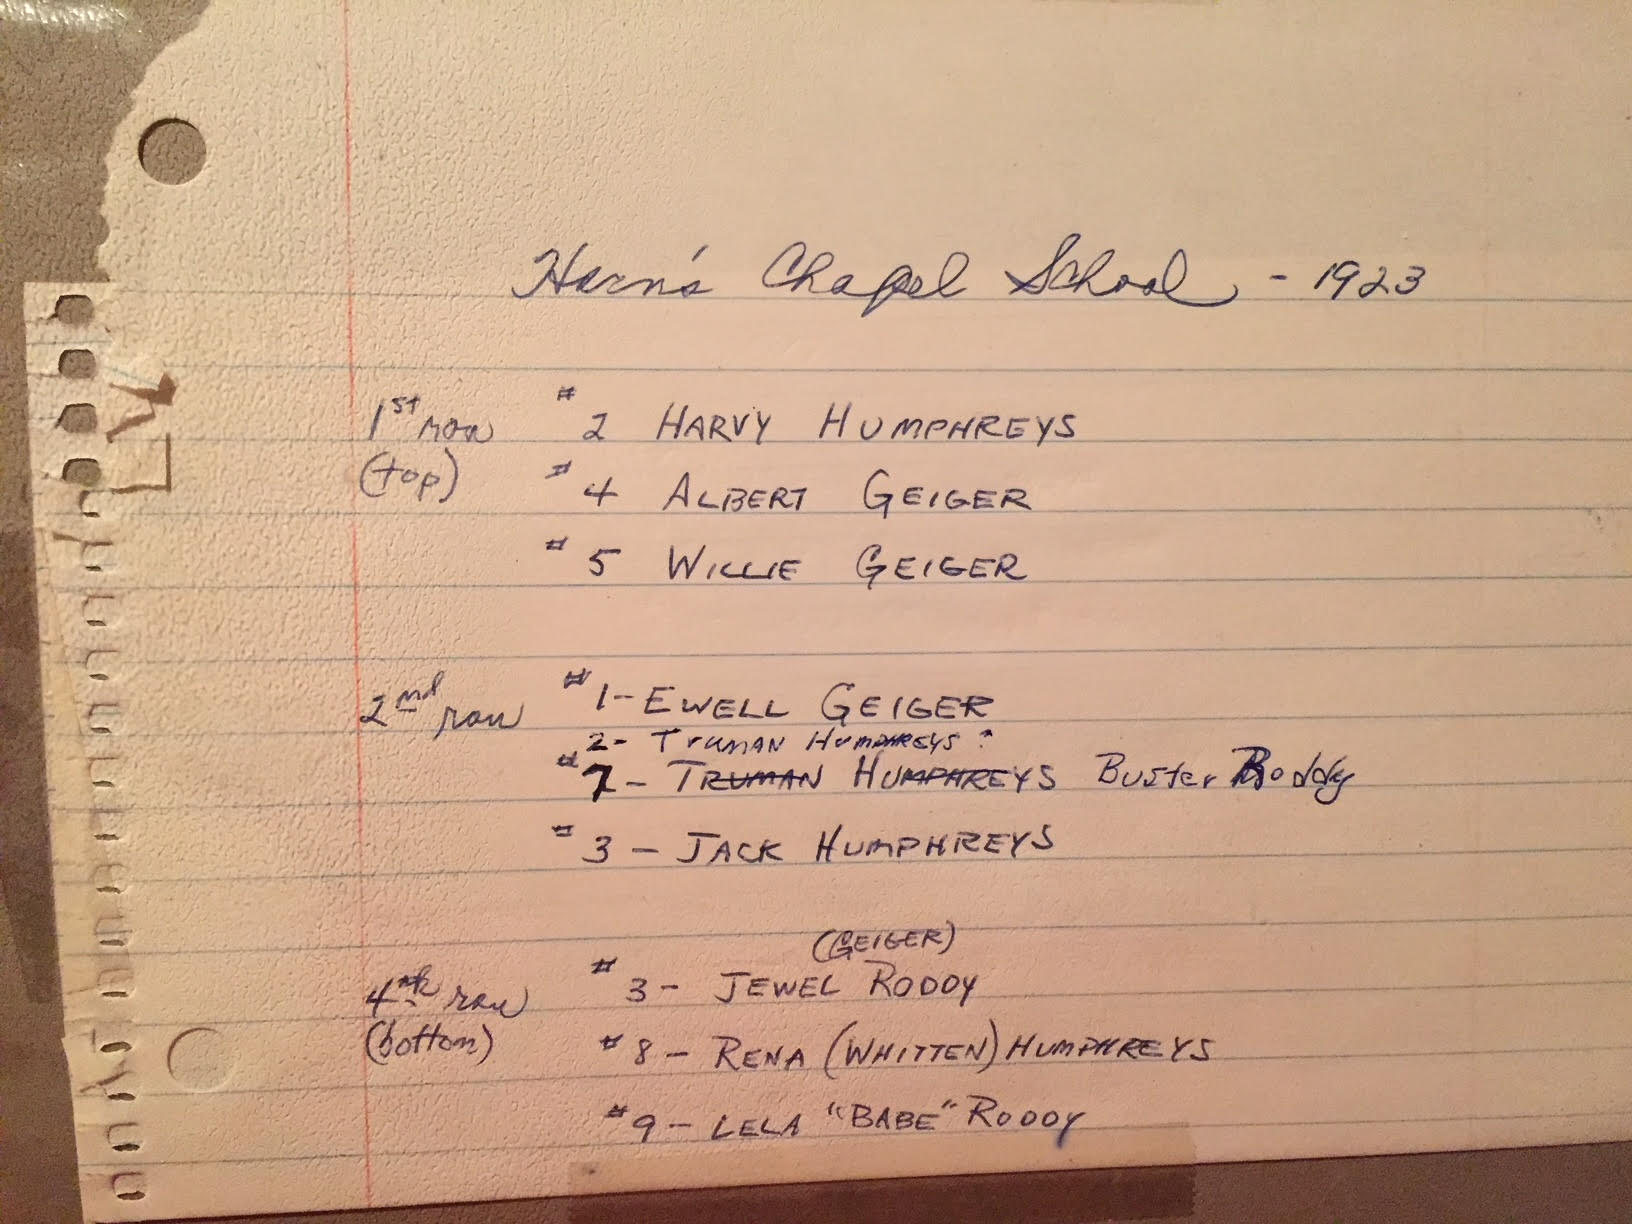 Horn's Chapel School - 1923
1st row # 2 HARVY HUMPHREYS
(top) # 4 ALBERT GEIGER
# 5 WILLIE GEIGER
2nd row # 1- EWELL GEIGER
2- TRUMAN HUMPHREYS ?
# 7- TRUMAN HUMPHREYS Buster Roddy
# 3 - JACK HUMPHREYS
(GEIGER)
4th row # 3- JEWEL RODDY
(bottom) # 8- RENA (WHITTEN) HUMPHREYS
# 9- LELA "BABE" RODDY